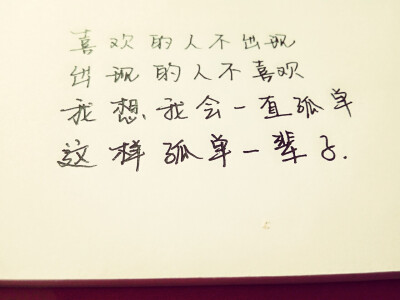 喜欢的人不出现
出现的人不喜欢
我想,我会一直孤单
这样孤单一辈子.